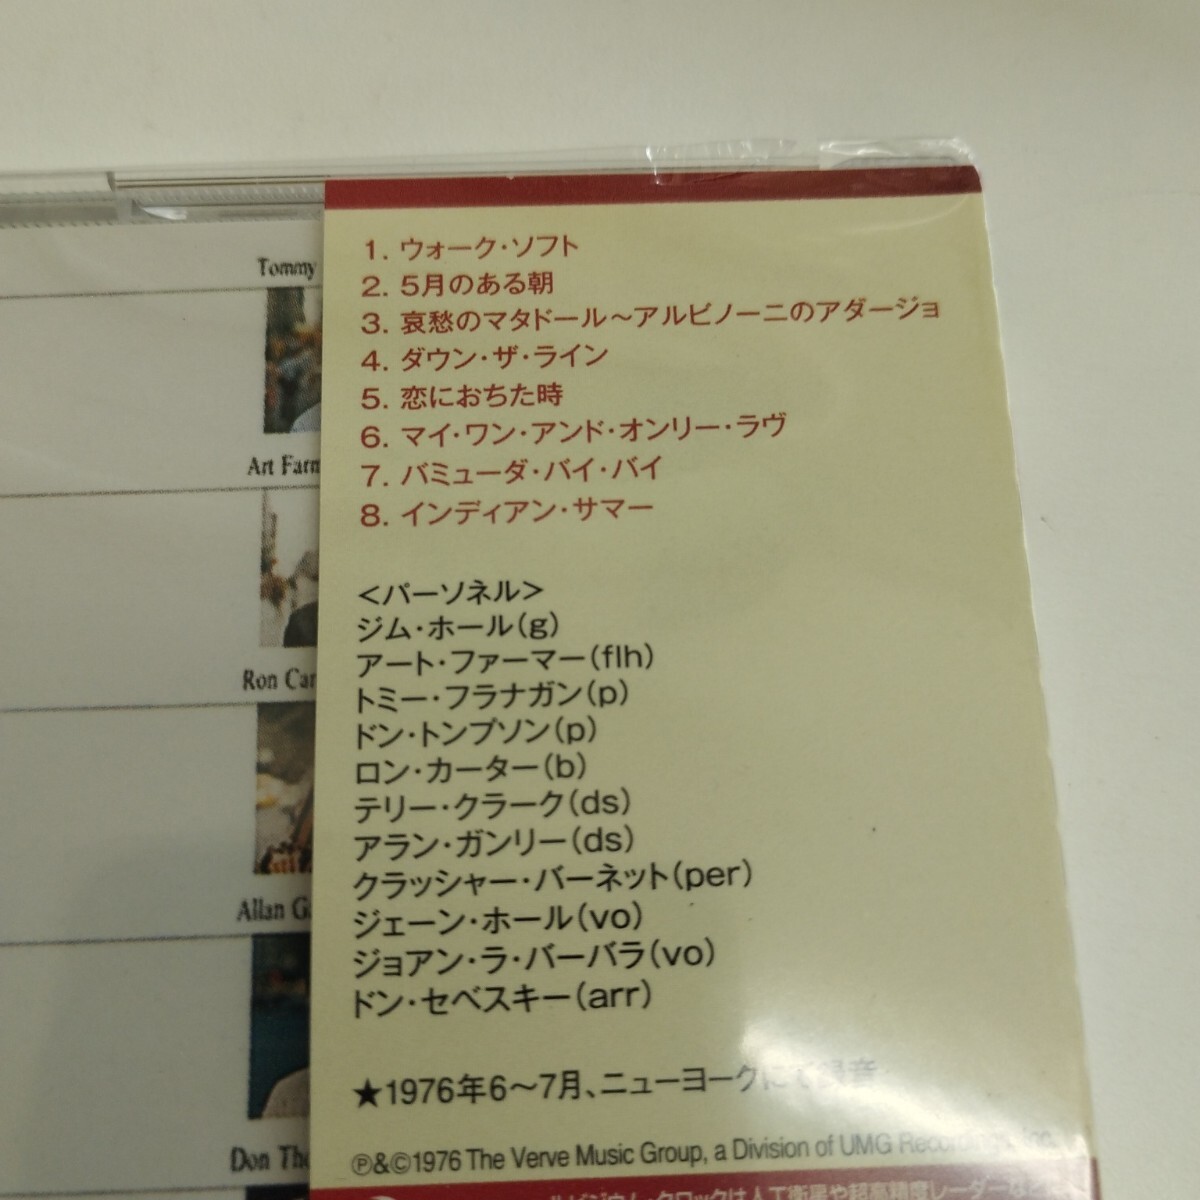 Tommy
Art Farm
Ron Car
Allan Ga
Don Tho
1. ウォーク・ソフト
2. 5月のある朝
3. 哀愁のマタドール〜アルビノーニのアダージョ
4. ダウン・ザ・ライン
5. 恋におちた時
6. マイ・ワン・アンド・オンリー・ラヴ
7. バミューダ・バイ・バイ
8. インディアン・サマー
<パーソネル>
ジム・ホール(g)
アート・ファーマー(flh)
トミー・フラナガン(p)
ドン・トンプソン(p)
ロン・カーター(b)
テリー・クラーク(ds)
アラン・ガンリー(ds)
クラッシャー・バーネット(per)
ジェーン・ホール(vo)
ジョアン・ラ・バーバラ(vo)
ドン・セベスキー(arr)
★1976年6〜7月、ニューヨークにて録音
Ⓟ&©1976 The Verve Music Group, a Division of UMG Recordings, Inc.
ルビジウム・クロックは人工衛星や超高精度レーダーなど